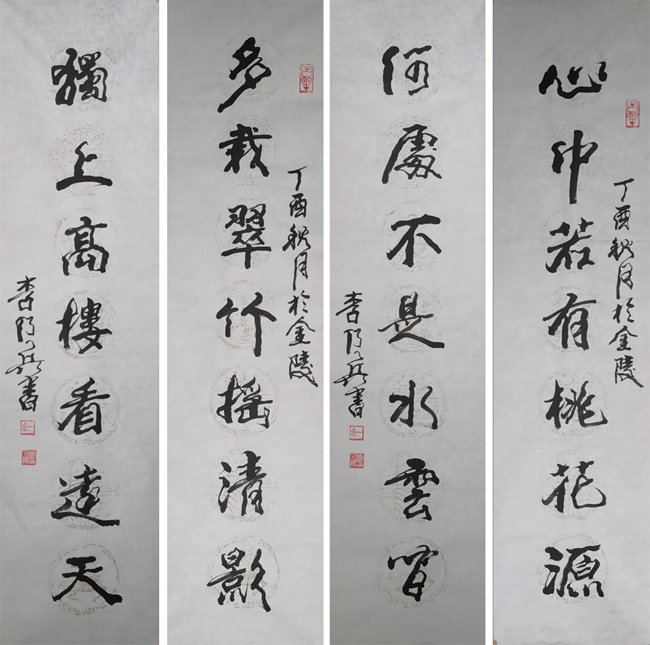 心中若有桃花源
丁酉秋月於金陵
何處不是水雲間
書
多栽翠竹搖清影
丁酉秋月於金陵
獨上高樓看遠天
書